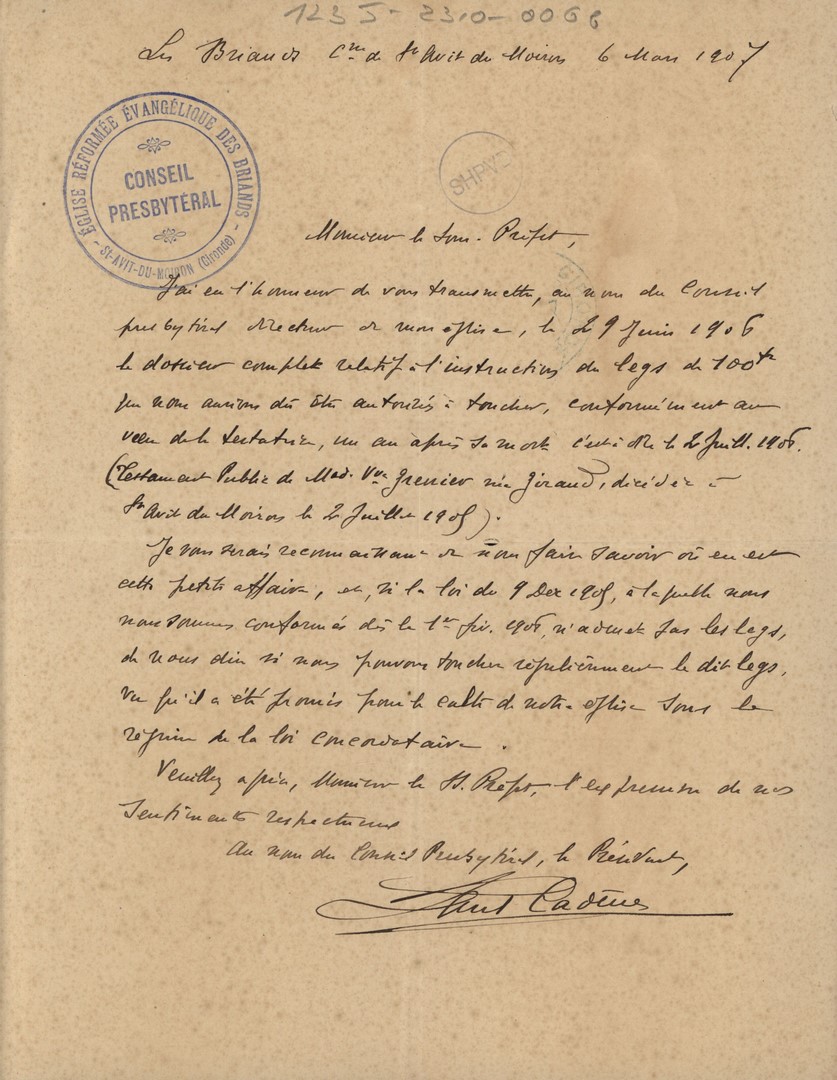 123 J - 2310-0066
Les Briands Cne de St Avit du Moiron 6 Mars 1907
ÉGLISE RÉFORMÉE ÉVANGÉLIQUE DES BRIANDS
CONSEIL
PRESBYTÉRAL
ST-AVIT-DU-MOIRON (Gironde)
SHPV
Monsieur le Sous-Préfet,
J'ai eu l'honneur de vous transmettre, au nom du Conseil
presbytéral directeur de mon église, le 29 Juin 1906
le dossier complet relatif à l'instruction du legs de 100 frs
que nous aurions dû être autorisés à toucher, conformément au
vœu de la testatrice, un an après sa mort c'est à dire le 2 Juill. 1906.
(Testament Public de Mad. Vve Grenier née Giraud, décédée à
St Avit du Moiron le 2 Juillet 1905).
Je vous serais reconnaissant de nous faire savoir où en est
cette petite affaire, et, si la loi du 9 Dec 1905, à laquelle nous
nous sommes conformés dès le 1er fév. 1906, n'admet pas les legs,
de nous dire si nous pouvons toucher régulièrement le dit legs,
vu qu'il a été promis pour le culte de notre église sous le
régime de la loi concordataire.
Veuillez agréer, Monsieur le SS. Préfet, l'expression de nos
sentiments respectueux
Au nom du Conseil Presbytéral, le Président,
Cadène